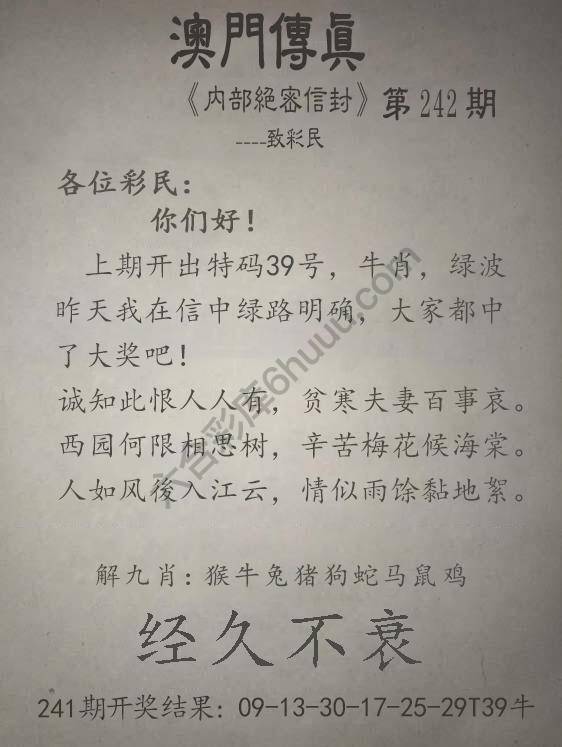 澳門傳眞
《内部絕密信封》第242期
----致彩民
各位彩民：
你们好！
上期开出特码39号，牛肖，绿波
昨天我在信中绿路明确，大家都中
了大奖吧！
诚知此恨人人有，贫寒夫妻百事哀。
西园何限相思树，辛苦梅花候海棠。
人如风後入江云，情似雨馀黏地絮。
六合彩库6huuu.com
解九肖：猴牛兔猪狗蛇马鼠鸡
经久不衰
241期开奖结果：09-13-30-17-25-29T39牛